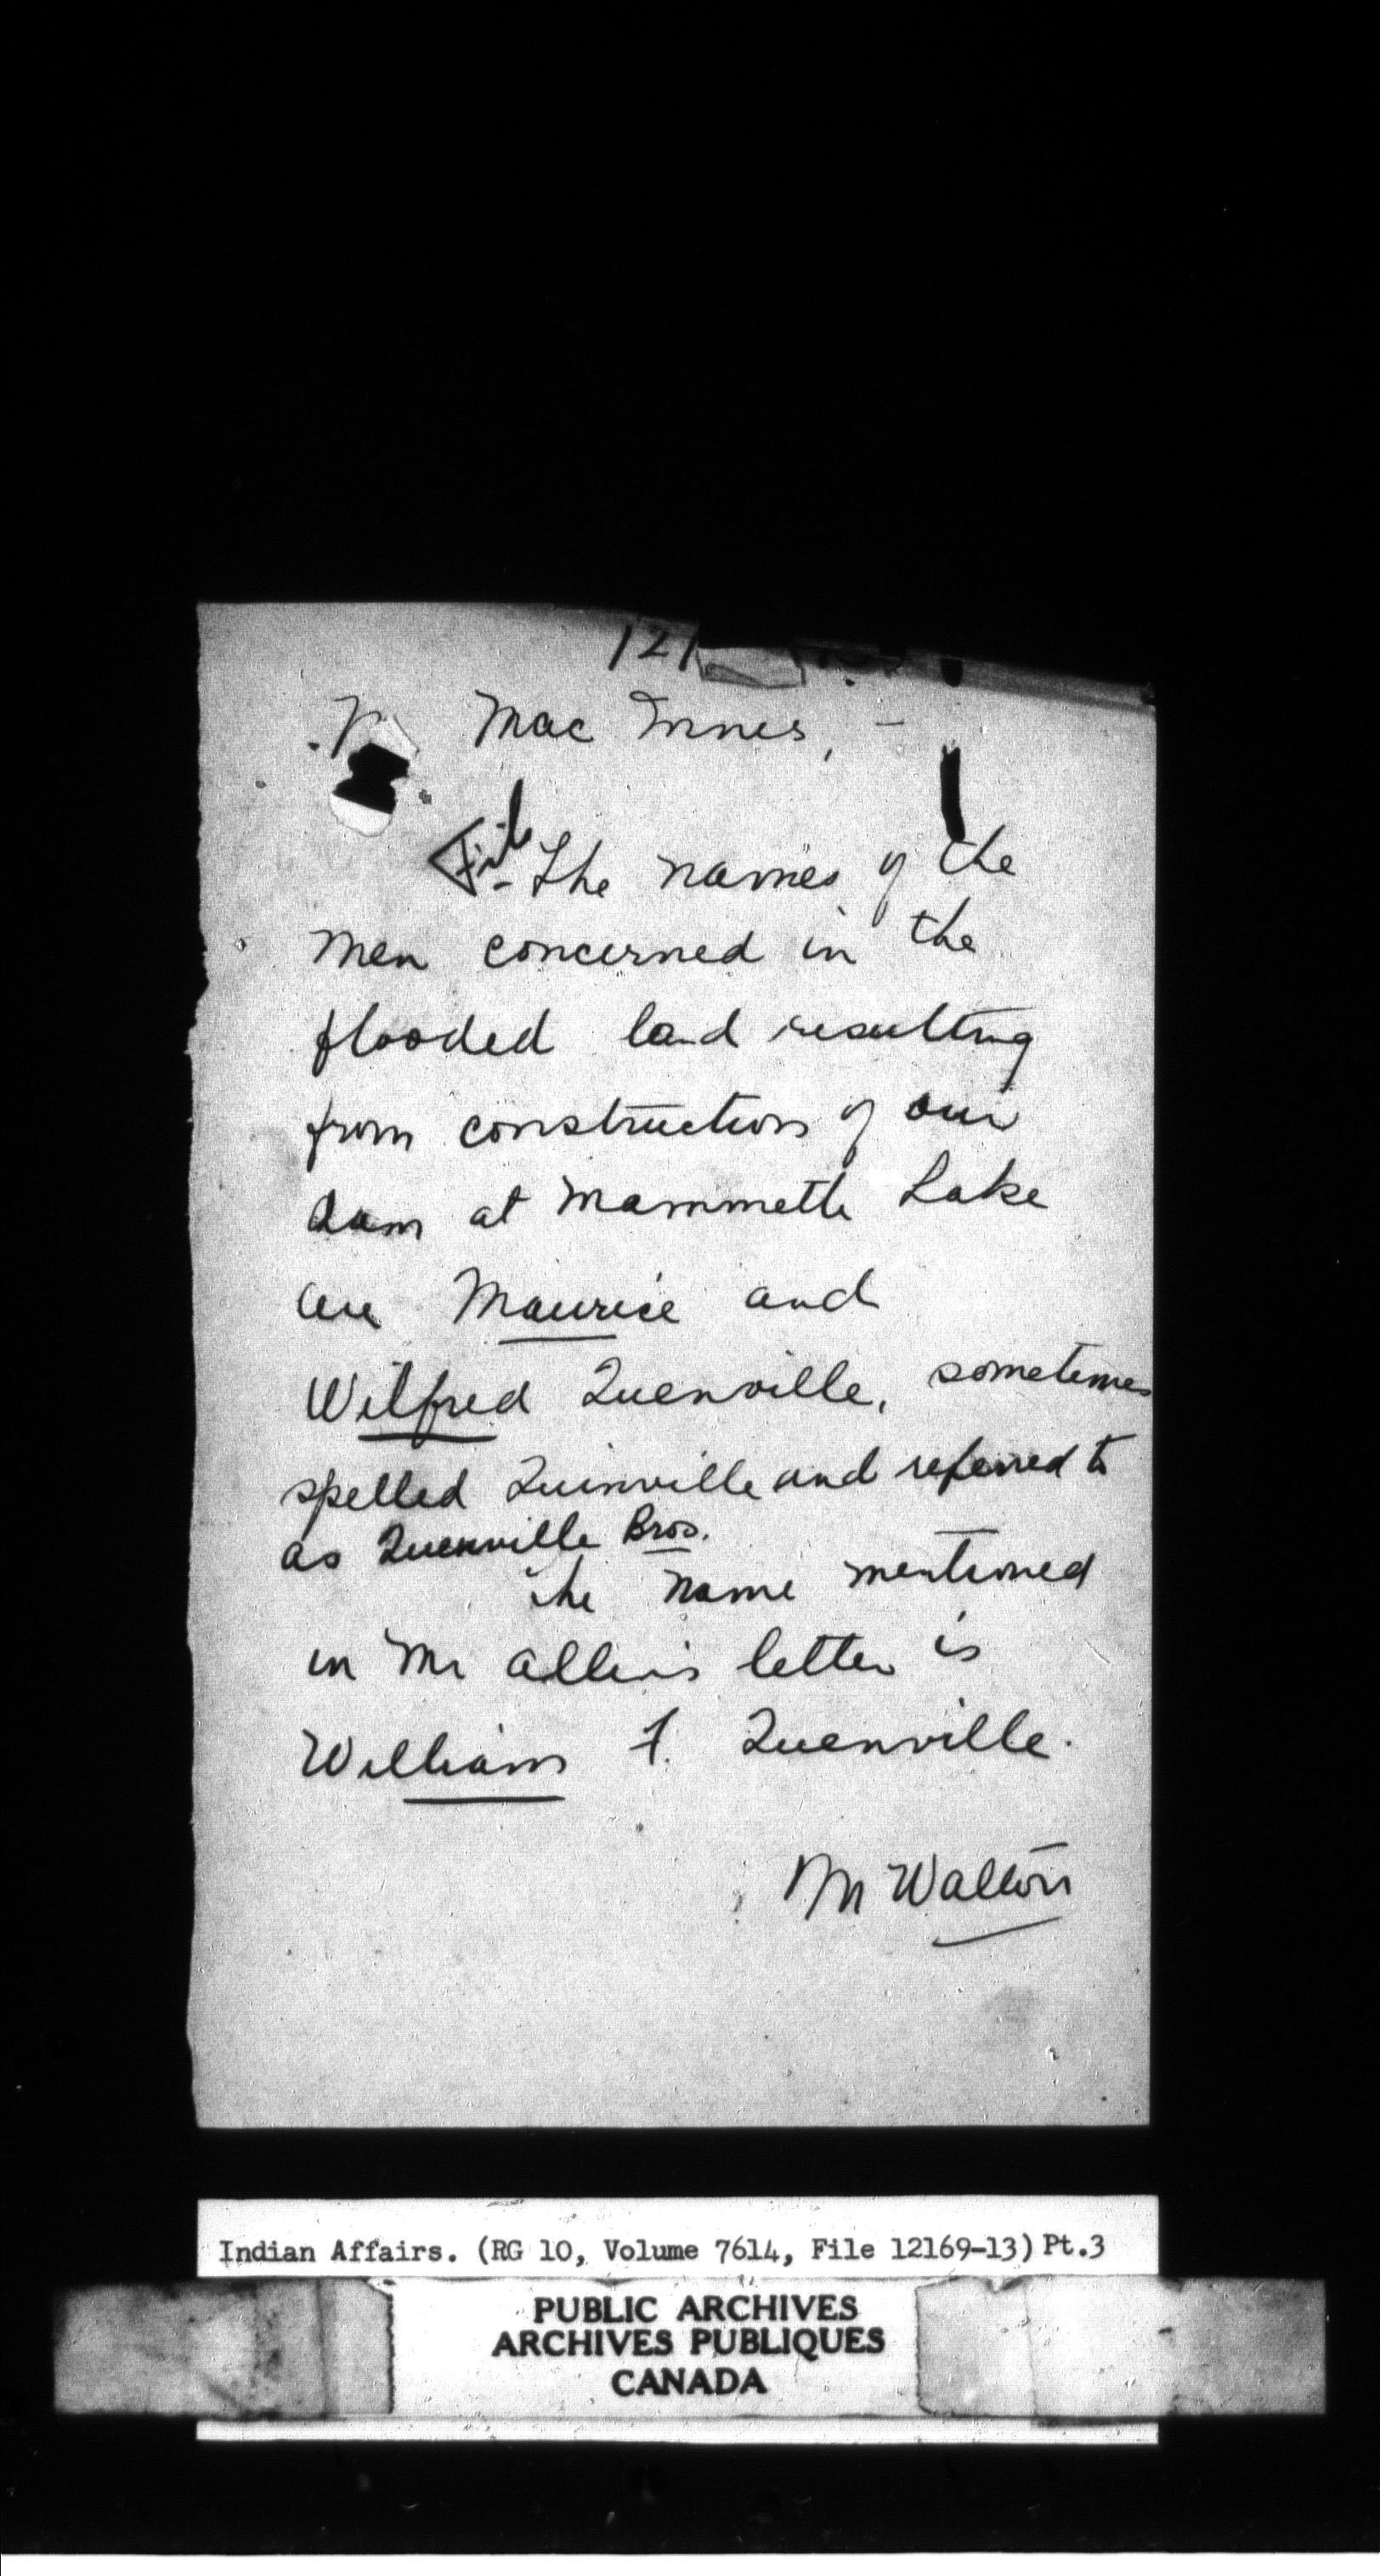 121
Mac Innes, -
File
The names of the
men concerned in the
flooded land resulting
from construction of our
dam at Mammette Lake
are Maurice and
Wilfred Quenville, sometimes
spelled Quinville and referred to
as Quenville Bros.
The name mentioned
in Mr Allen's letter is
William F. Quenville.
M Walton
Indian Affairs. (RG 10, Volume 7614, File 12169-13) Pt.3
PUBLIC ARCHIVES
ARCHIVES PUBLIQUES
CANADA